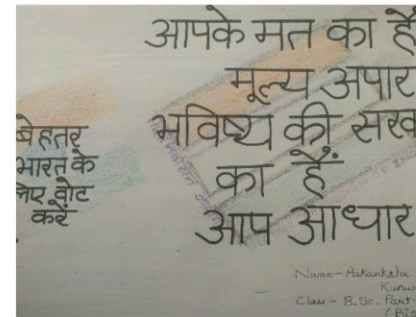 आपके मत का हैं
मूल्य अपार
भविष्य की सरव
का हैं
आप आधार
बेहतर
भारत के
लिए वोट
करें
Name - Aakanksha
Class - B.Sc. Part-